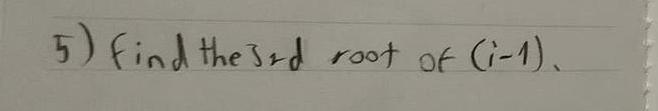 5) find the 3rd root of (i-1).